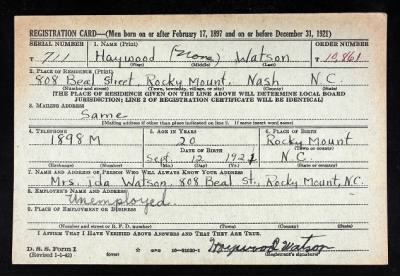 REGISTRATION CARD—(Men born on or after February 17, 1897 and on or before December 31, 1921)
SERIAL NUMBER 1. NAME (Print) ORDER NUMBER
T 711 Haywood (None) Watson T 10,861
(First) (Middle) (Last)
2. PLACE OF RESIDENCE (Print)
808 Beal Street, Rocky Mount, Nash N.C.
(Number and street) (Town, township, village, or city) (County) (State)
[THE PLACE OF RESIDENCE GIVEN ON THE LINE ABOVE WILL DETERMINE LOCAL BOARD
JURISDICTION; LINE 2 OF REGISTRATION CERTIFICATE WILL BE IDENTICAL]
3. MAILING ADDRESS
Same
[Mailing address if other than place indicated on line 2. If same insert word same]
4. TELEPHONE 5. AGE IN YEARS 6. PLACE OF BIRTH
1898 M 20 Rocky Mount
DATE OF BIRTH (Town or county)
Sept. 12 1921 N.C.
(Exchange) (Number) (Mo.) (Day) (Yr.) (State or country)
7. NAME AND ADDRESS OF PERSON WHO WILL ALWAYS KNOW YOUR ADDRESS
Mrs. Ida Watson, 808 Beal St., Rocky Mount, N.C.
8. EMPLOYER'S NAME AND ADDRESS
Unemployed
9. PLACE OF EMPLOYMENT OR BUSINESS
(Number and street or R. F. D. number) (Town) (County) (State)
I AFFIRM THAT I HAVE VERIFIED ABOVE ANSWERS AND THAT THEY ARE TRUE.
D. S. S. Form 1 GPO Haywood Watson
(Revised 1-1-42) (over) (Registrant's signature)